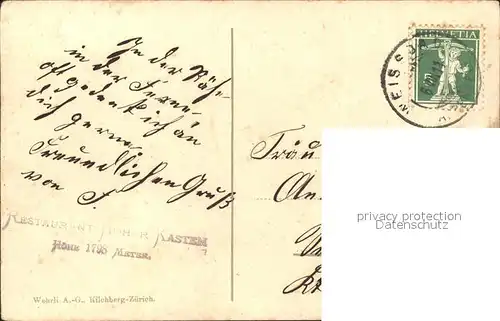 In der Näh-
in der Ferne
oft gedenk ich an
dich gerne
Freundlichen Gruß
von F.
RESTAURANT HOHER KASTEN
HÖHE 1798 METER.
Wehrli A.-G., Kilchberg-Zürich.
HELVETIA
5
WEISSB
Fräu
An
privacy protection
Datenschutz